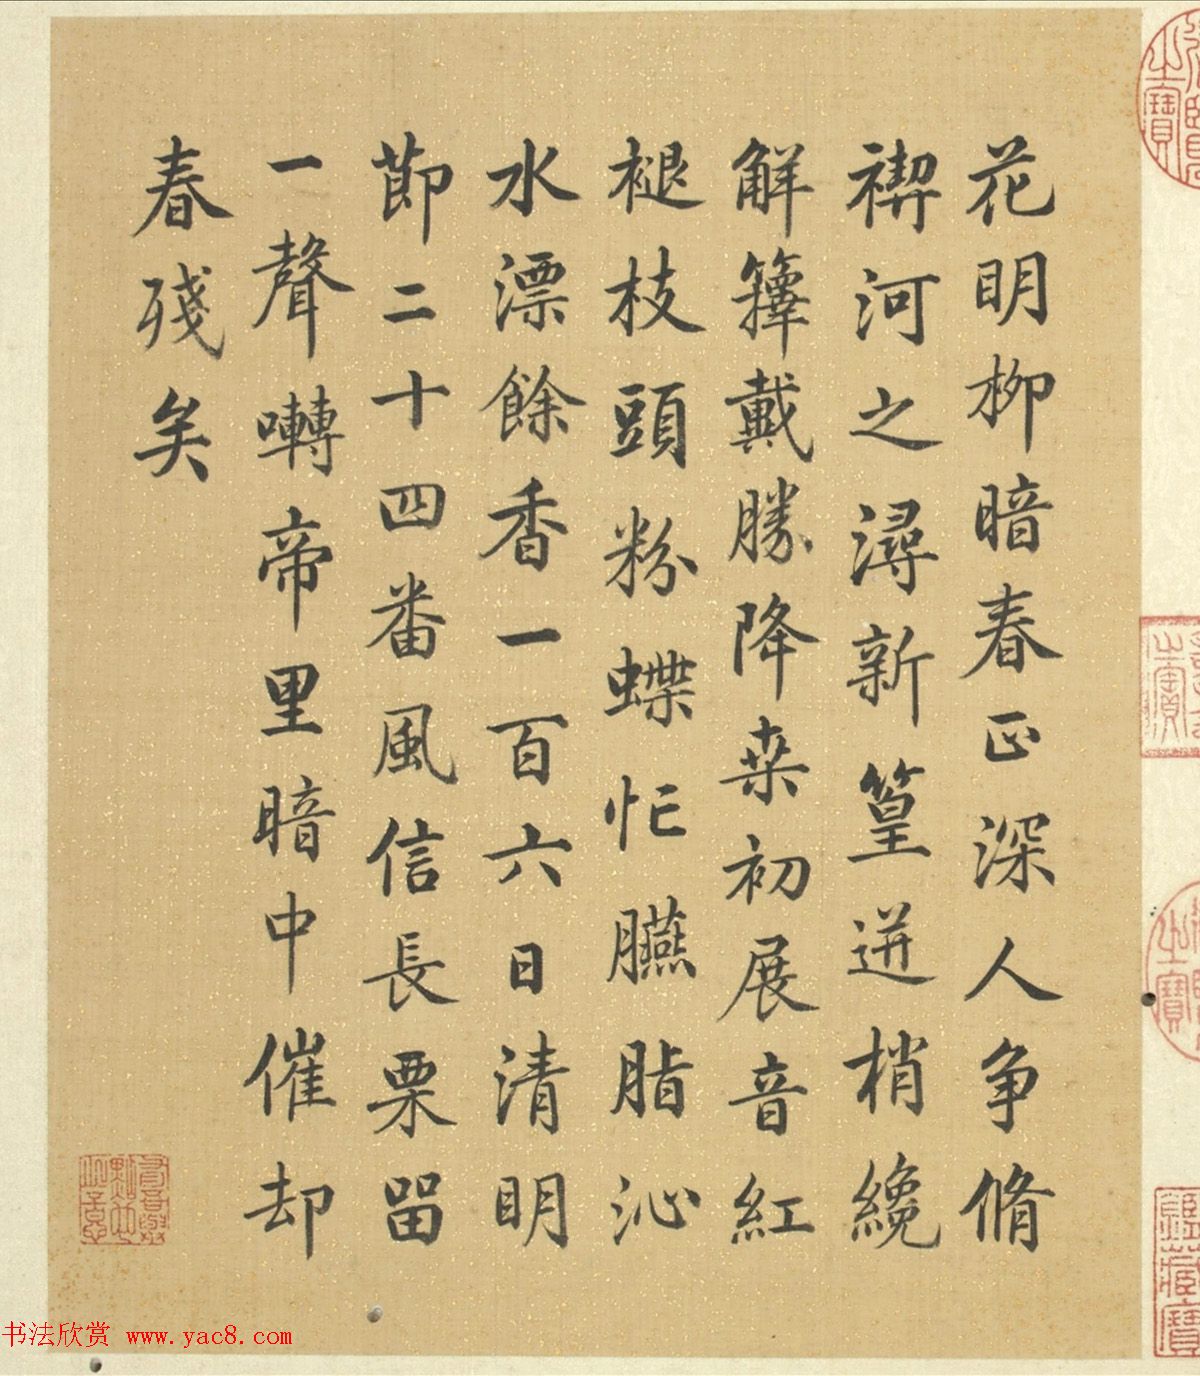 花明柳暗春正深人争脩
禊河之潯新篁迸梢纔
解籜戴勝降桒初展音紅
褪枝頭粉蝶忙臙脂沁
水漂餘香一百六日清明
莭二十四番風信長栗留
一聲囀帝里暗中催却
春殘矣
之寶
之寶
鑑藏寶
书法欣赏 www.yac8.com